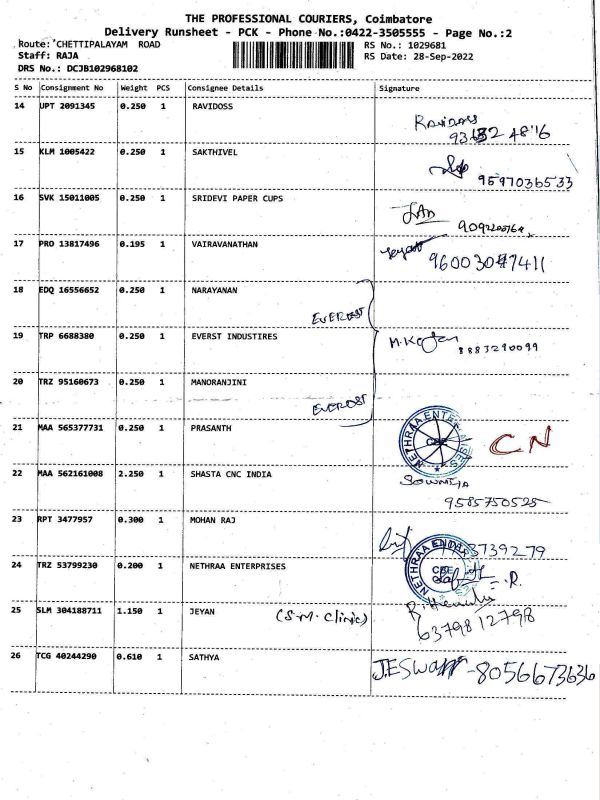 THE PROFESSIONAL COURIERS, Coimbatore
Delivery Runsheet - PCK - Phone No.:0422-3505555 - Page No.:2
Route: CHETTIPALAYAM ROAD
RS No.: 1029681
Staff: RAJA
RS Date: 28-Sep-2022
DRS No.: DCJB102968102
S No Consignment No Weight PCS Consignee Details Signature
14 UPT 2091345 0.250 1 RAVIDOSS
RAVIDOSS
15 KLM 1005422 0.250 1 SAKTHIVEL
9597036533
16 SVK 15011005 0.250 1 SRIDEVI PAPER CUPS
17 PRO 13817496 0.195 1 VAIRAVANATHAN
18 EDQ 16556652 0.250 1 NARAYANAN
EVEREST
19 TRP 6688380 0.250 1 EVERST INDUSTIRES
8883290099
20 TRZ 95160673 0.250 1 MANORANJINI
EVEREST
21 MAA 565377731 0.250 1 PRASANTH
CN
22 MAA 562161008 2.250 1 SHASTA CNC INDIA
SOWMIYA
9585750525
23 RPT 3477957 0.300 1 MOHAN RAJ
24 TRZ 53799230 0.200 1 NETHRAA ENTERPRISES
NETHRAA
CBE
25 SLM 304188711 1.150 1 JEYAN (S.M. Clinic)
6379812798
26 TCG 40244290 0.610 1 SATHYA
J.ESwarr - 8056673636